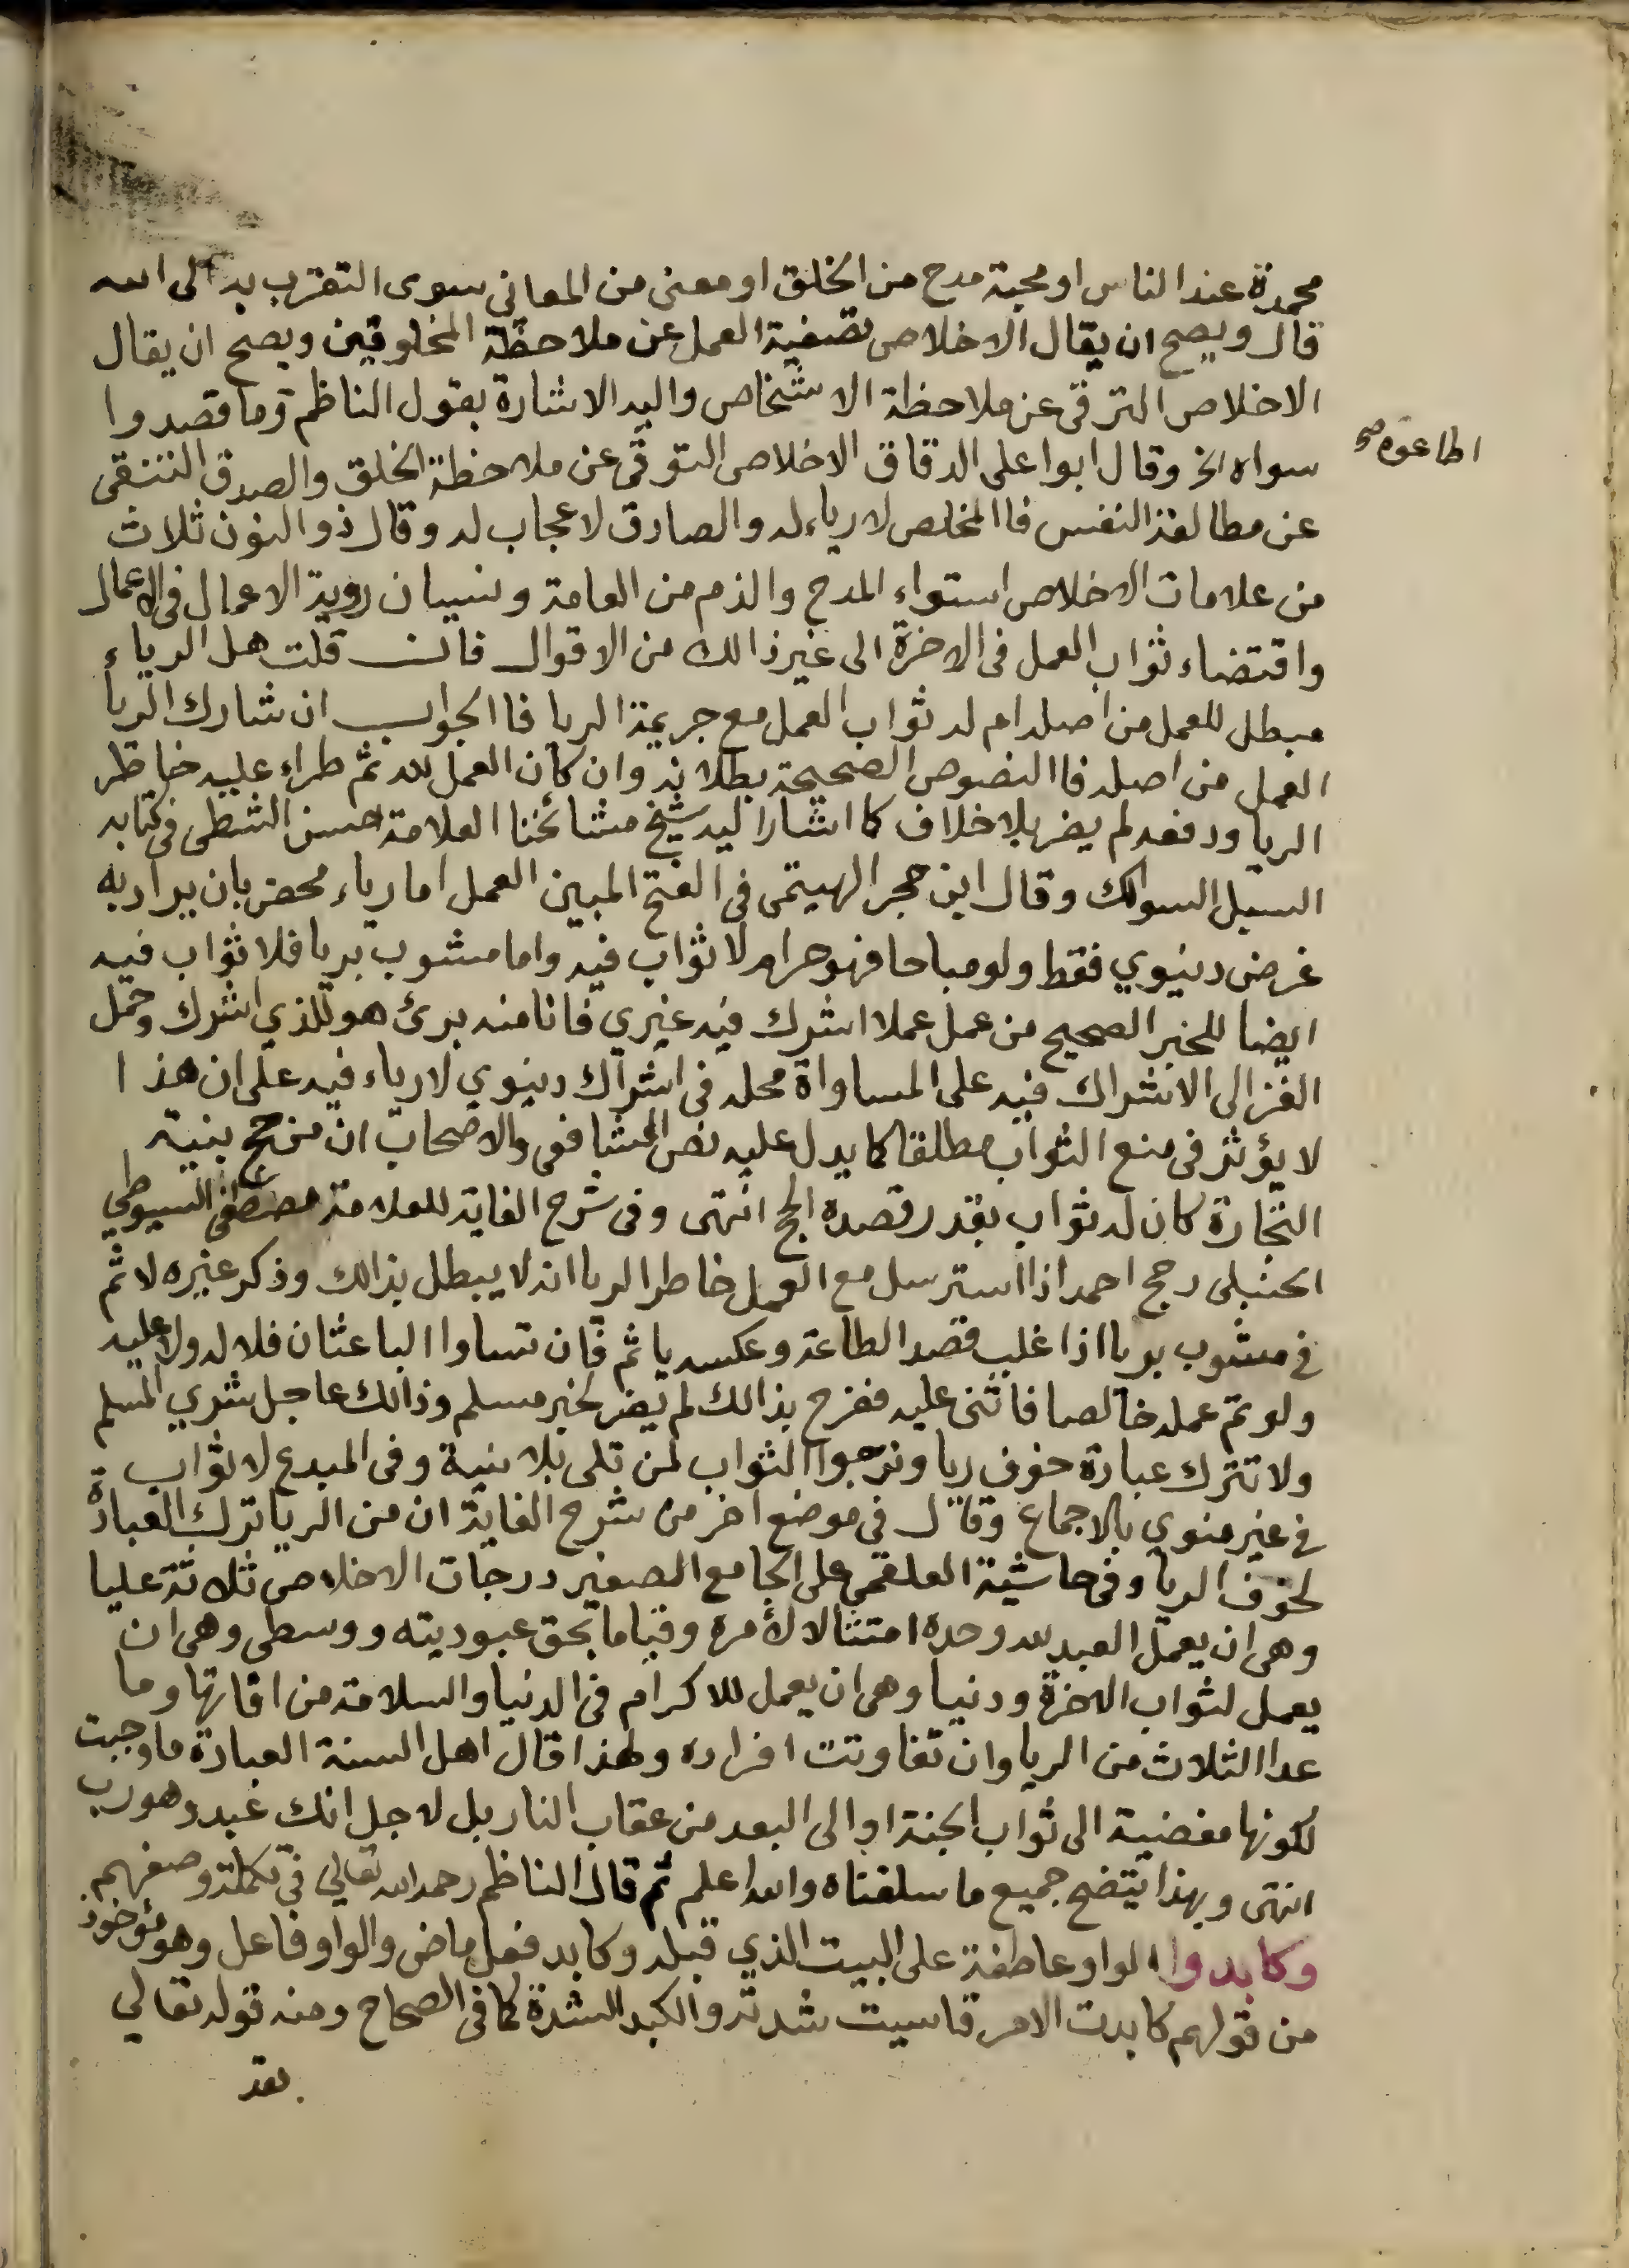 محمدة عند الناس او محبة مدح من الخلق او معنى من المعاني سوى التقرب به الى الله
قال ويصح ان يقال الاخلاص تصفية العمل عن ملاحظة المخلوقين ويصح ان يقال
الاخلاص الترقي عن ملاحظة الاشخاص واليه الاشارة بقول الناظم وما قصدوا
سواه الخ وقال ابوا على الدقاق الاخلاص التوقي عن ملاحظة الخلق والصدق التنقى
عن مطالعة النفس فاالمخلص لا رياء له والصادق لا عجاب له وقال ذو النون ثلاث
من علامات الاخلاص استواء المدح والذم من العامة ونسيان روية الاعمال في الاعمال
واقتضاء ثواب العمل فى الاخرة الى غير ذالك من الاقوال فان قلت هل الرياء
مبطل للعمل من اصله ام له ثواب العمل مع جريمة الريا فاالجواب ان شارك الريا
العمل من اصله فاالنصوص الصحيحة بطلانه وان كان العمل لله ثم طراء عليه خاطر
الريا ودفعه لم يضر بلا خلاف كما اشار اليه شيخ مشائخنا العلامة حسن الشطي في كتابه
السبل السوالك وقال ابن حجر الهيتمى في الفتح المبين العمل اما رياء محض بان يراد به
غرض دنيوي فقط ولو مباحا فهو حرام لا ثواب فيه واما مشوب بريا فلا ثواب فيه
ايضا للخبر الصحيح من عمل عملا اشرك فيه غيري فانا منه برئ هو للذي اشرك وحمل
الغزالى الاشراك فيه على المساواة محله فى اشراك دنيوي لا رياء فيه على ان هذا
لا يؤثر فى منع الثواب مطلقا كما يدل عليه نص الشافعى والاصحاب ان من حج بنية
التجارة كان له ثواب بقدر قصده الحج انتهى وفى شرح الغاية للعلامة مصطفى السيوطي
الحنبلى رجح احمد اذا استرسل مع العمل خاطر الريا انه لا يبطل بذالك وذكر غيره لا ثم
في مشوب بريا اذا غلب قصد الطاعة وعكسه ياثم فان تساوا الباعثان فلا له ولا عليه
ولو تم عمله خالصا فاثنى عليه ففرح بذالك لم يضر لخبر مسلم وذالك عاجل بشرى المسلم
ولا تترك عبادة خوف ريا ونرجوا الثواب لمن تلى بلا نية وفى المبدع لا ثواب
في غير منوي بالاجماع وقال في موضع اخر من شرح الغاية ان من الريا ترك العبادة
لخوف الريا وفى حاشية العلقمي على الجامع الصغير درجات الاخلاص ثلاثة عليا
وهى ان يعمل العبد لله وحده امتثالا لأمره وقياما بحق عبوديته ووسطى وهى ان
يعمل لثواب الاخرة ودنيا وهى ان يعمل للاكرام فى الدنيا والسلامة من افاتها وما
عدا الثلاث من الريا وان تفاوتت افراده ولهذا قال اهل السنة العبادة ما وجبت
لكونها مفضية الى ثواب الجنة او الى البعد من عقاب النار بل لاجل انك عبد وهو رب
انتهى وبهذا يتضح جميع ما سلفناه والله اعلم ثم قال الناظم رحمه الله تعالي في تكملة وصفهم
وكابدوا الواو عاطفة على البيت الذي قبله وكابد فعل ماض والواو فاعل وهو مؤخوذ
من قولهم كابدت الامر قاسيت شدته والكبد الشدة كما فى الصحاح ومنه قوله تعالي
لقد